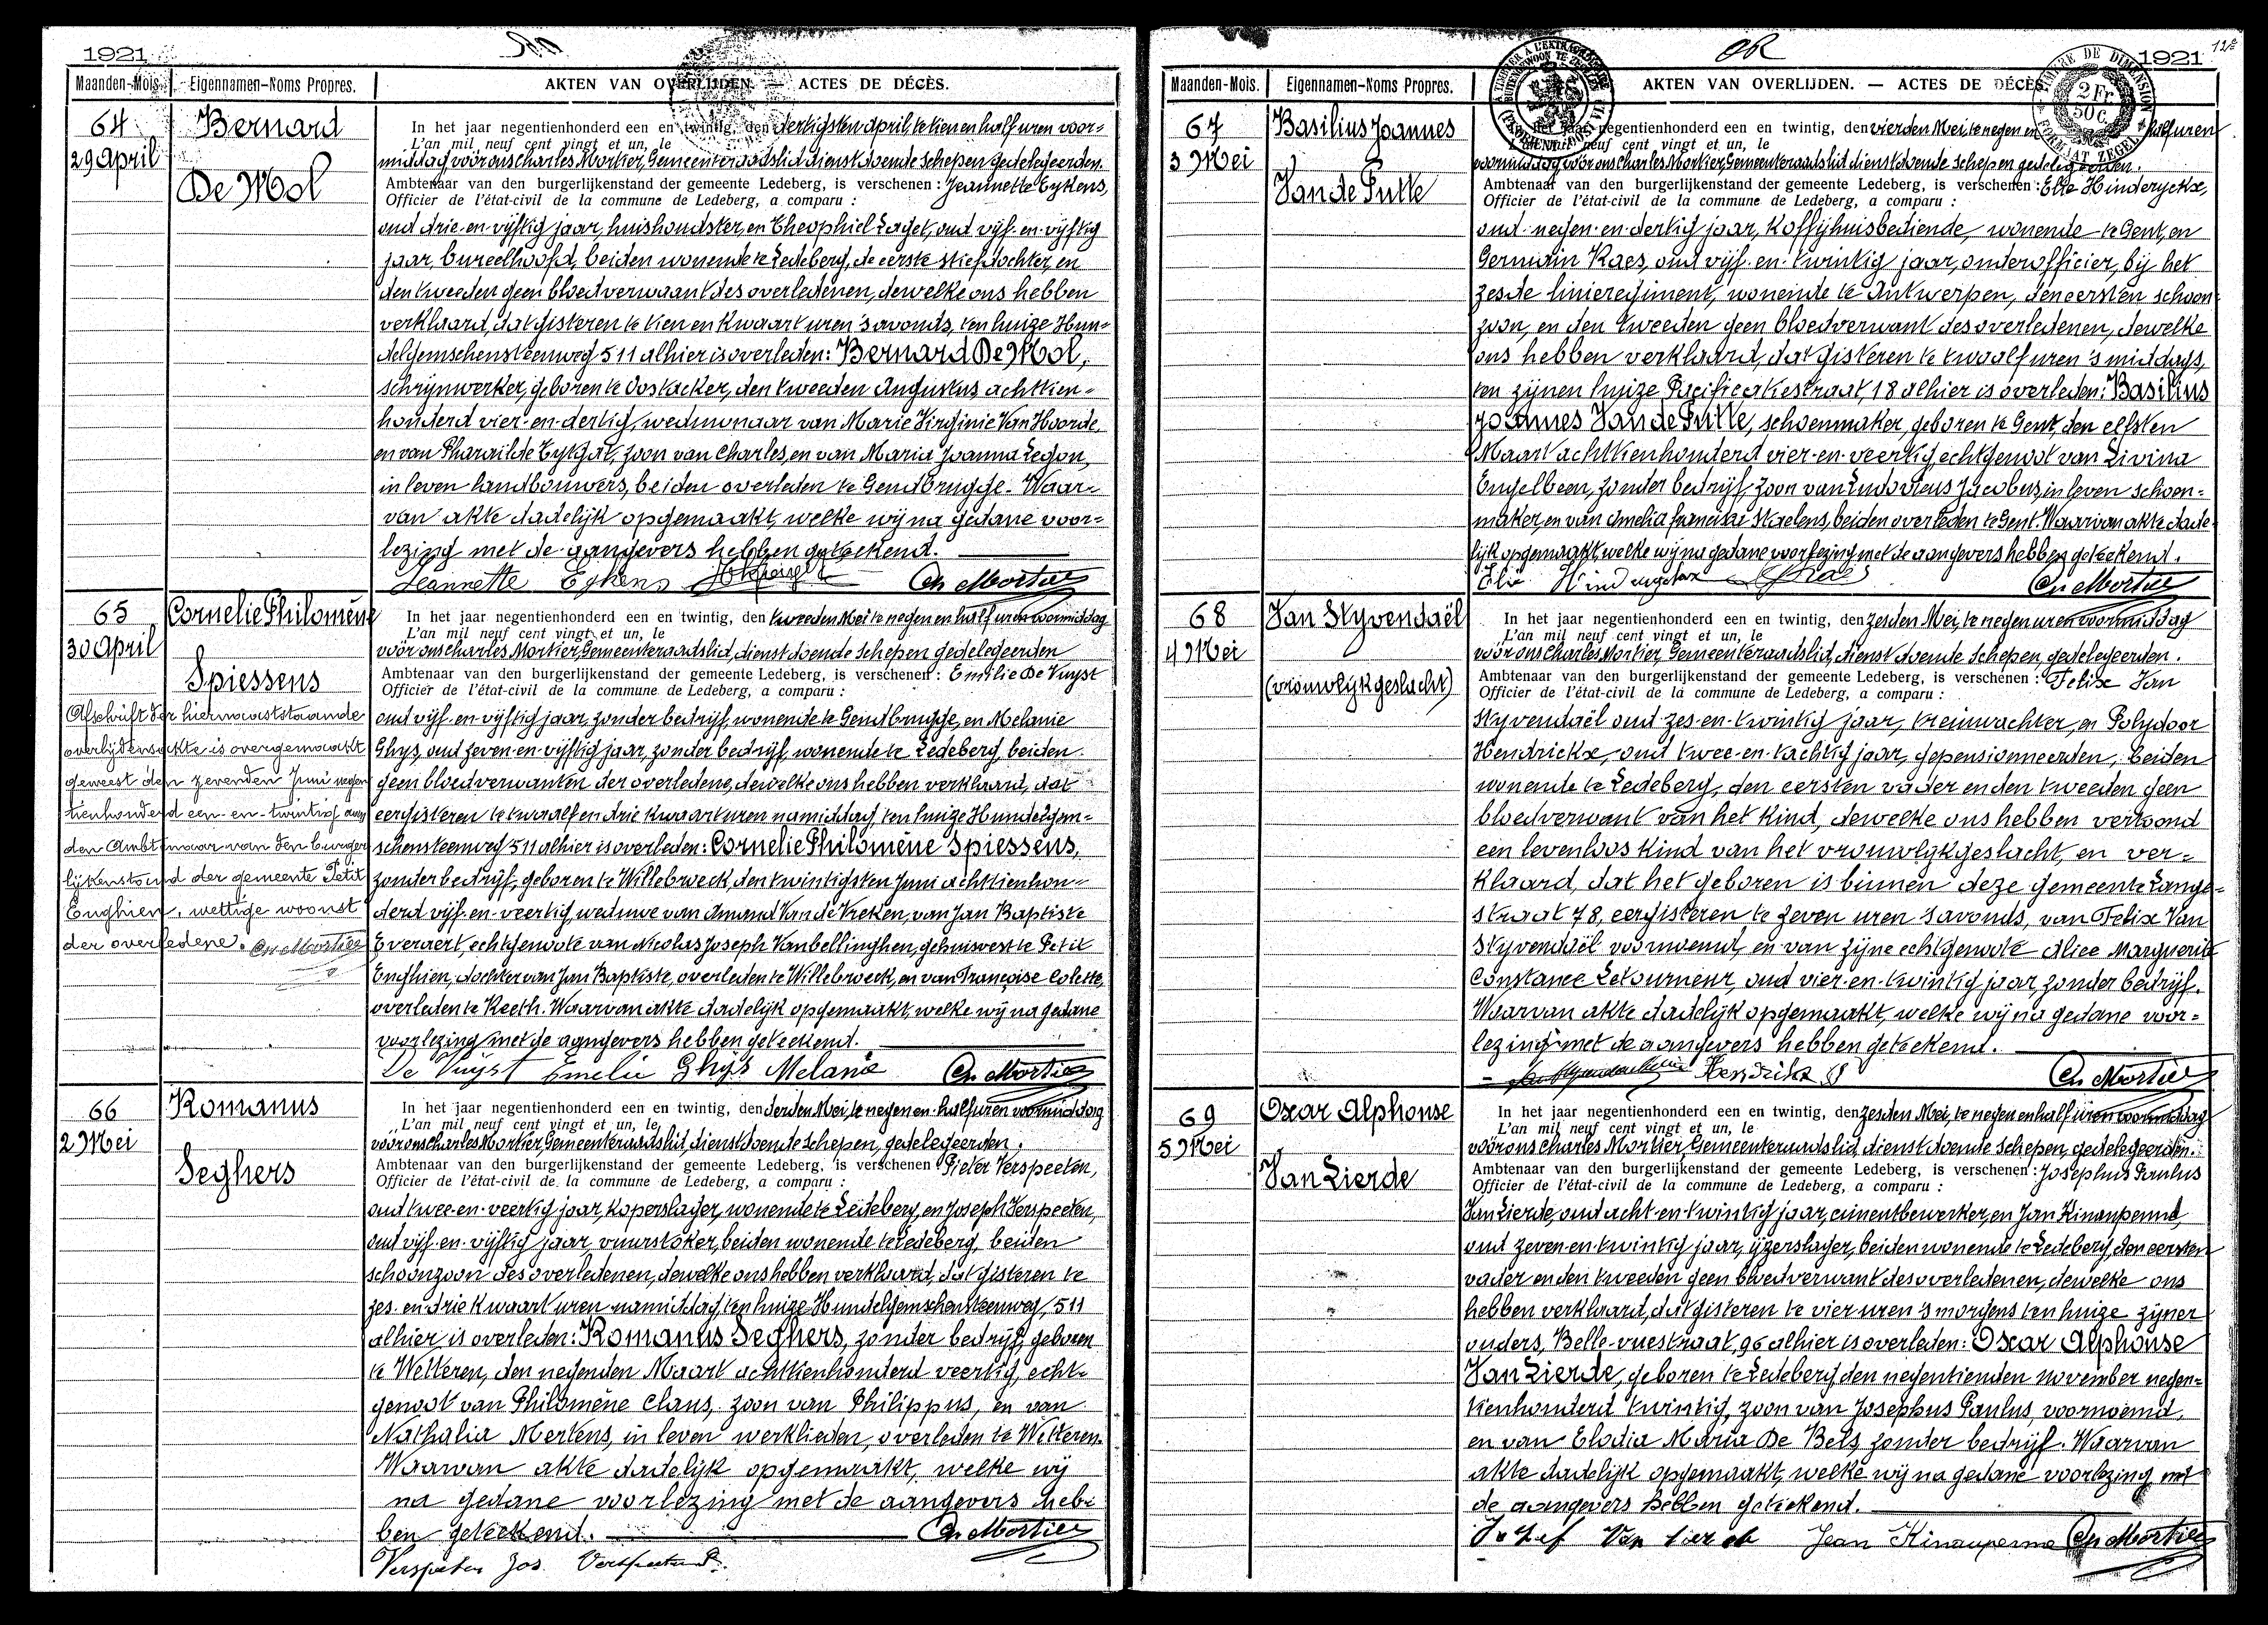 1921
Maanden-Mois. Eigennamen-Noms Propres. AKTEN VAN OVERLIJDEN. — ACTES DE DÉCÈS.
64 Bernard
29 April
De Mol
In het jaar negentienhonderd een en twintig, den dertigsten april, te tien en half uren voor=
L'an mil neuf cent vingt et un, le
middag vóór ons Charles Mortier, Gemeenteraadslid dienstdoende schepen gedelegeerden.
Ambtenaar van den burgerlijkenstand der gemeente Ledeberg, is verschenen : Jeannette Eykens,
Officier de l'état-civil de la commune de Ledeberg, a comparu :
oud drie-en-vijftig jaar, huishoudster, en Theophiel Laget, oud vijf-en-vijftig
jaar, bureelhoofd, beiden wonende te Ledeberg, de eerste stiefdochter, en
den tweeden geen bloedverwant des overledenen, dewelke ons hebben
verklaard, dat gisteren te tien en kwaart uren 's avonds, ten huize Hun=
delgemschensteenweg 511 alhier is overleden: Bernard De Mol,
schrijnwerker, geboren te Oostacker, den tweeden Augustus achttien=
honderd vier-en-dertig, weduwnaar van Marie Virginie Van Hoorde,
en van Pharaïlde Eytgat, zoon van Charles, en van Maria Joanna Legon,
in leven landbouwers, beiden overleden te Gendbrugge. Waar=
van akte dadelijk opgemaakt, welke wij na gedane voor=
lezing met de aangevers hebben geteekend.
Jeannette Eykens Ch Mortier
65 Cornelie Philomène
30 April
Spiessens
Afschrift der hiernevenstaande
overlijdensakte is overgemaakt
geweest den zevenden Juni negen
tienhonderd een-en-twintig aan
den Ambtenaar van den burger
lijkenstand der gemeente Petit
Enghien, wettige woonst
der overledene. Ch Mortier
In het jaar negentienhonderd een en twintig, den tweeden Mei te negen en half uren voormiddag
L'an mil neuf cent vingt et un, le
vóór ons Charles Mortier, Gemeenteraadslid, dienstdoende schepen gedelegeerden
Ambtenaar van den burgerlijkenstand der gemeente Ledeberg, is verschenen : Emilie De Vuyst
Officier de l'état-civil de la commune de Ledeberg, a comparu :
oud vijf-en-vijftig jaar, zonder bedrijf, wonende te Gendbrugge, en Melanie
Ghys, oud zeven-en-vijftig jaar, zonder bedrijf, wonende te Ledeberg, beiden
geen bloedverwanten der overledene, dewelke ons hebben verklaard, dat
eergisteren te twaalf en drie kwaart uren namiddag, ten huize Hundelgem=
schensteenweg 511 alhier is overleden: Cornelie Philomène Spiessens,
zonder bedrijf, geboren te Willebroeck, den twintigsten Juni achttienhon=
derd vijf-en-veertig, weduwe van Amand Van de Vreken, van Jan Baptiste
Everaert, echtgenoote van Nicolas Joseph Vanbellinghen, gehuisvest te Petit
Enghien, dochter van Jan Baptiste, overleden te Willebroeck, en van Françoise Colette,
overleden te Reeth. Waarvan akte dadelijk opgemaakt, welke wij na gedane
voorlezing met de aangevers hebben geteekend.
De Vuyst Emelie Ghijs Melanie Ch Mortier
66 Romanus
2 Mei
Seghers
In het jaar negentienhonderd een en twintig, den derden Mei, te negen en half uren voormiddag
L'an mil neuf cent vingt et un, le
vóór ons Charles Mortier, Gemeenteraadslid, dienstdoende schepen, gedelegeerden.
Ambtenaar van den burgerlijkenstand der gemeente Ledeberg, is verschenen Pieter Verspeeten,
Officier de l'état-civil de la commune de Ledeberg, a comparu :
oud twee-en-veertig jaar, koperslager, wonende te Ledeberg, en Joseph Verspeeten,
oud vijf-en-vijftig jaar, vuurstoker, beiden wonende te Ledeberg, beiden
schoonzoon des overledenen, dewelke ons hebben verklaard, dat gisteren te
zes en drie kwaart uren namiddag, ten huize Hundelgemschensteenweg, 511
alhier is overleden: Romanus Seghers, zonder bedrijf, geboren
te Wetteren, den negenden Maart achttienhonderd veertig, echt=
genoot van Philomène Claus, zoon van Philippus, en van
Nathalia Mertens, in leven werklieden, overleden te Wetteren.
Waarvan akte dadelijk opgemaakt, welke wij
na gedane voorlezing met de aangevers heb=
ben geteekend. Ch Mortier
Verspeeten Jos Verspeeten P.
OR
1921
Maanden-Mois. Eigennamen-Noms Propres. AKTEN VAN OVERLIJDEN. — ACTES DE DÉCÈS.
TIMBRE DE DIMENSION 2 Fr. 50 c. FORMAAT ZEGEL
67 Basilius Joannes
3 Mei
Van de Putte
In het jaar negentienhonderd een en twintig, den vierden Mei, te negen en half uren
L'an mil neuf cent vingt et un, le
voormiddag vóór ons Charles Mortier, Gemeenteraadslid dienstdoende schepen gedelegeerden.
Ambtenaar van den burgerlijkenstand der gemeente Ledeberg, is verschenen : Elie Hinderyckx,
Officier de l'état-civil de la commune de Ledeberg, a comparu :
oud negen-en-dertig jaar, koffijhuisbediende, wonende te Gent, en
Germain Raes, oud vijf-en-twintig jaar, onderofficier, bij het
zesde linieregiment, wonende te Antwerpen, den eersten schoon=
zoon, en den tweeden geen bloedverwant des overledenen, dewelke
ons hebben verklaard, dat gisteren te twaalf uren 's middags,
ten zijnen huize Pacificatiestraat, 18 alhier is overleden: Basilius
Joannes Van de Putte, schoenmaker, geboren te Gent, den elfsten
Maart achttienhonderd vier-en-veertig, echtgenoot van Livina
Engelbeen, zonder bedrijf, zoon van Ludovicus Jacobus, in leven schoen=
maker, en van Amelia Franciska Staelens, beiden overleden te Gent. Waarvan akte dade
lijk opgemaakt, welke wij na gedane voorlezing met de aangevers hebben geteekend.
Elie Ch Mortier
68 Van Styvendaël
4 Mei
(vrouwlijk geslacht)
In het jaar negentienhonderd een en twintig, den zesden Mei, te negen uren voormiddag
L'an mil neuf cent vingt et un, le
vóór ons Charles Mortier, Gemeenteraadslid, dienstdoende schepen, gedelegeerden.
Ambtenaar van den burgerlijkenstand der gemeente Ledeberg, is verschenen : Felix Van
Officier de l'état-civil de la commune de Ledeberg, a comparu :
Styvendaël oud zes-en-twintig jaar, treinwachter, en Polydoor
Hendrickx, oud twee-en-tachtig jaar, gepensionneerden, beiden
wonende te Ledeberg, den eersten vader en den tweeden geen
bloedverwant van het kind, dewelke ons hebben vertoond
een levenloos kind van het vrouwlijk geslacht, en ver=
klaard, dat het geboren is binnen deze gemeente Lange=
straat 78, eergisteren te zeven uren 's avonds, van Felix Van
Styvendaël voornoemd, en van zijne echtgenoote Alice Marguerite
Constance Letourneur, oud vier-en-twintig jaar, zonder bedrijf.
Waarvan akte dadelijk opgemaakt, welke wij na gedane voor=
lezing met de aangevers hebben geteekend.
Hendrikx P Ch Mortier
69 Oscar Alphonse
5 Mei
Van Lierde
In het jaar negentienhonderd een en twintig, den zesden Mei, te negen en half uren voormiddag
L'an mil neuf cent vingt et un, le
vóór ons Charles Mortier, Gemeenteraadslid, dienstdoende schepen, gedelegeerden.
Ambtenaar van den burgerlijkenstand der gemeente Ledeberg, is verschenen : Josephus Paulus
Officier de l'état-civil de la commune de Ledeberg, a comparu :
Van Lierde, oud acht-en-twintig jaar, cimentbewerker, en Jan Kinaupenne,
oud zeven-en-twintig jaar, ijzerslager, beiden wonende te Ledeberg, den eersten
vader en den tweeden geen bloedverwant des overledenen, dewelke ons
hebben verklaard, dat gisteren te vier uren 's morgens ten huize zijner
ouders, Belle-vuestraat, 96 alhier is overleden: Oscar Alphonse
Van Lierde, geboren te Ledeberg den negentienden november negen=
tienhonderd twintig, zoon van Josephus Paulus, voornoemd,
en van Elodia Maria De Bels, zonder bedrijf. Waarvan
akte dadelijk opgemaakt, welke wij na gedane voorlezing met
de aangevers hebben geteekend.
Jozef Van Lierde Jean Kinaupenne Ch Mortier